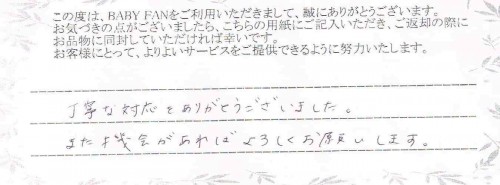 この度は、BABY FANをご利用いただきまして、誠にありがとうございます。
お気づきの点がございましたら、こちらの用紙にご記入いただき、ご返却の際に
お品物に同封していただければ幸いです。
お客様にとって、よりよいサービスをご提供できるように努力いたします。
丁寧な対応をありがとうございました。
また機会があればよろしくお願いします。